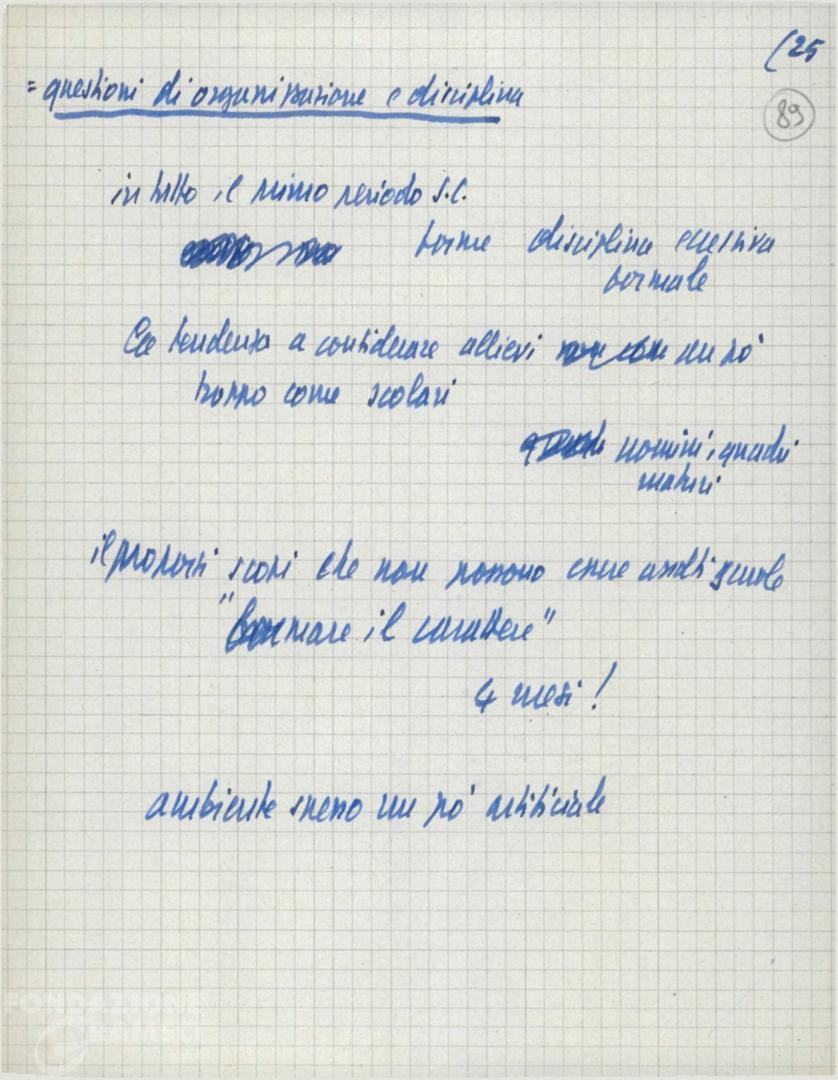 (25
89
= questioni di organizzazione e disciplina
in tutto il primo periodo S.C.
forme disciplina eccessiva
formale
La tendenza a considerare allievi un pò
troppo come scolari
uomini, quadri
maturi
il proporsi scopi che non possono essere assolti scuole
"formare il carattere"
4 mesi!
ambiente spesso un pò artificiale
FONDAZIONE
GRAMSCI